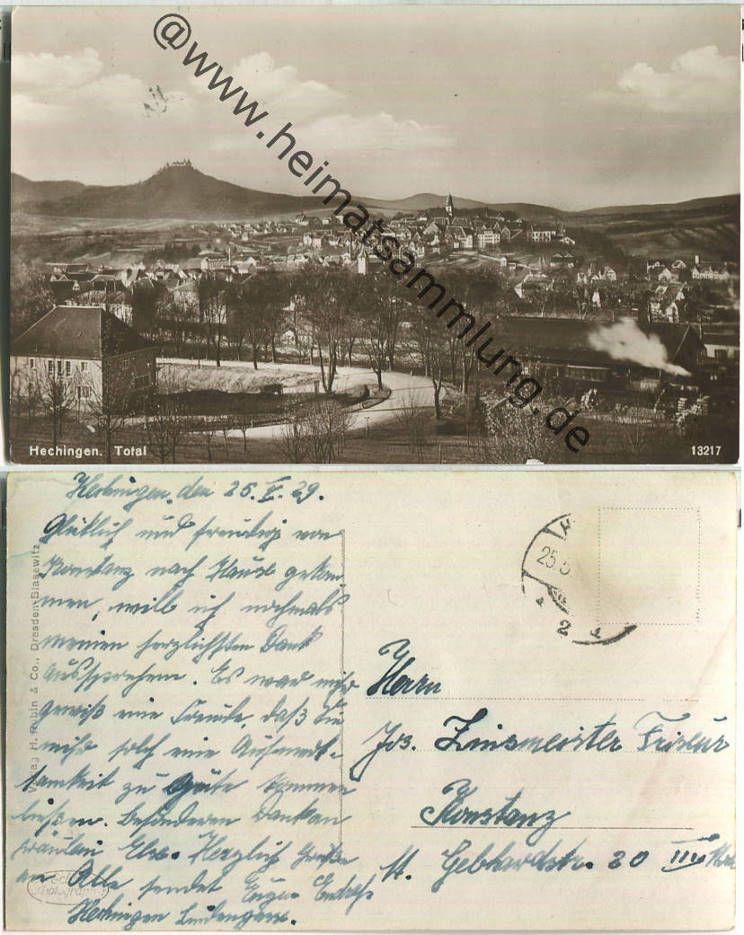 @www.heimatsammlung.de
Hechingen. Total
13217
Hechingen, den 25. V. 29.
Glücklich und freudig von
Konstanz nach Hause gekom-
men, will ich nochmals
meinen herzlichsten Dank
aussprechen. Es war mir
gewiß eine Freude, daß Sie
mir solch eine Aufmerk-
samkeit zu Güte kommen
ließen. Besonderen Dank an
Fräulein Else. Herzlich Grüße
an Alle sendet Eugen
Hechingen
Verlag H. Rubin & Co., Dresden-Blasewitz
Echte
Photographie
25.5
2
Herrn
Jos. Zinsmeister Friseur
Konstanz
St. Gebhardstr. 20 III